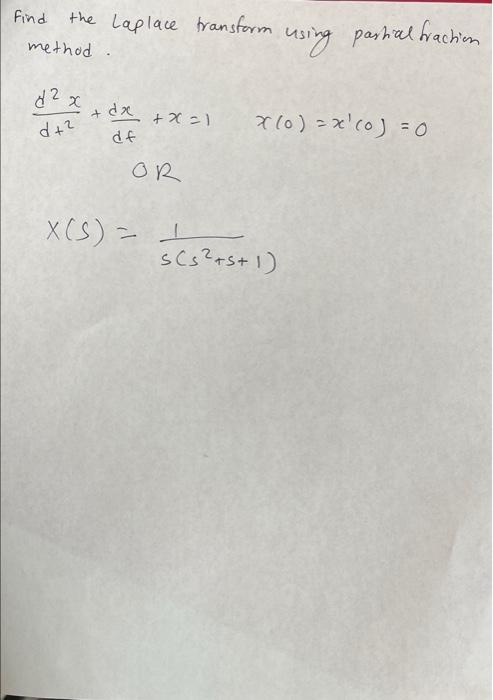 Find the Laplace transform using partial fraction
method.
d²x/dt² + dx/dt + x = 1 x(0) = x'(0) = 0
OR
X(S) = 1/S(S²+S+1)